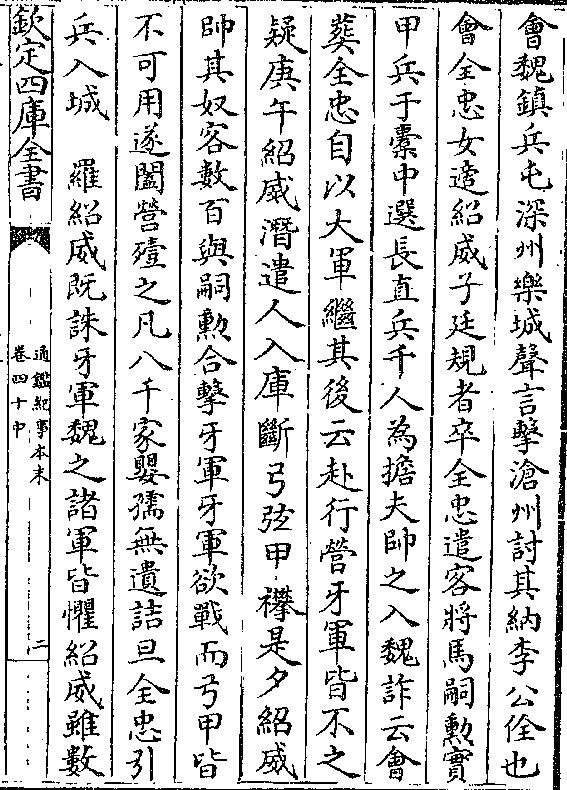 會魏鎮兵屯深州樂城聲言擊滄州討其納李公佺也
會全忠女適紹威子廷規者卒全忠遣客將馬嗣勲實
甲兵于橐中選長直兵千人為擔夫帥之入魏詐云會
葬全忠自以大軍繼其後云赴行營牙軍皆不之
疑庚午紹威潛遣人入庫斷弓弦甲襻是夕紹威
帥其奴客數百與嗣勲合擊牙軍牙軍欲戰而弓甲皆
不可用遂闔營殪之凡八千家嬰孺無遺詰旦全忠引
兵入城　羅紹威既誅牙軍魏之諸軍皆懼紹威雖數
欽定四庫全書
通鑑紀事本末
卷四十中
二